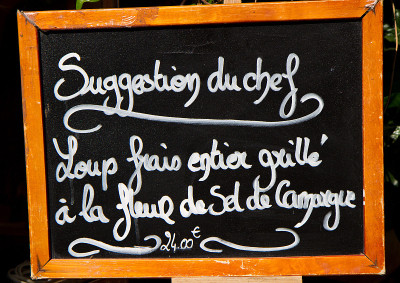 Suggestion du chef
Loup frais entier grillé
à la fleur de Sel de Camargue :
24.00 €